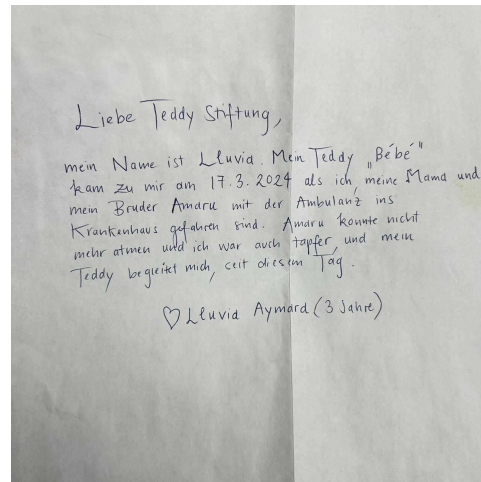 Liebe Teddy Stiftung,
mein Name ist Lluvia. Mein Teddy „Bébé"
kam zu mir am 17.3.2024 als ich, meine Mama und
mein Bruder Amaru mit der Ambulanz ins
Krankenhaus gefahren sind. Amaru konnte nicht
mehr atmen und ich war auch tapfer, und mein
Teddy begleitet mich, seit diesem Tag.
♡ Lluvia Aymard (3 Jahre)